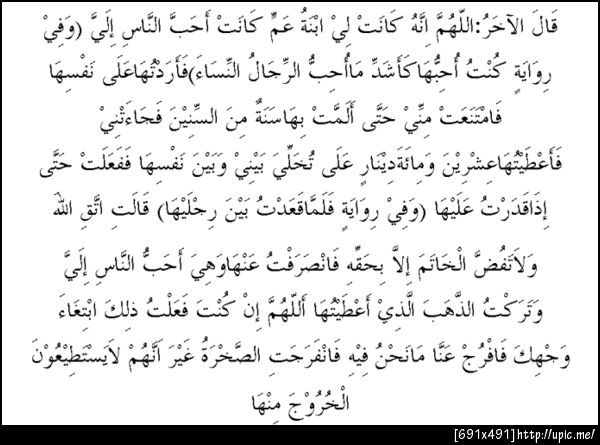 قَالَ الآخَرُ:اَللّهُمَّ اِنَّهُ كَانَتْ لِيْ ابْنَةُ عَمٍّ كَانَتْ أَحَبَّ النَّاسِ إِلَيَّ (وَفِيْ
رِوَايَةٍ كُنْتُ أُحِبُّهَا كَأَشَدِّ مَاأُحِبُّ الرِّجَالُ النِّسَاءَ)فَأَرَدْتُهَاعَلَى نَفْسِهَا
فَامْتَنَعَتْ مِنِّيْ حَتَّى أَلَمَّتْ بِهَاسَنَةٌ مِنَ السِّنِيْنَ فَجَاءَتْنِيْ
فَأَعْطَيْتُهَاعِشْرِيْنَ وَمِائَةَدِيْنَارٍ عَلَى تُخَلِّيَ بَيْنِيْ وَبَيْنَ نَفْسِهَا فَفَعَلَتْ حَتَّى
إِذَاقَدَرْتُ عَلَيْهَا (وَفِيْ رِوَايَةٍ فَلَمَّاقَعَدْتُ بَيْنَ رِجْلَيْهَا) قَالَتِ اتَّقِ اللهَ
وَلاَتَفُضَّ الْخَاتَمَ إِلاَّ بِحَقِّهِ فَانْصَرَفْتُ عَنْهَاوَهِيَ أَحَبُّ النَّاسِ إِلَيَّ
وَتَرَكْتُ الذَّهَبَ الَّذِيْ أَعْطَيْتُهَا أَللّهُمَّ إِنْ كُنْتَ فَعَلْتُ ذلِكَ ابْتِغَاءَ
وَجْهِكَ فَافْرُجْ عَنَّا مَانَحْنُ فِيْهِ فَانْفَرَجَتِ الصَّخْرَةُ غَيْرَ اَنَّهُمْ لاَيَسْتَطِيْعُوْنَ
الْخُرُوْجَ مِنْهَا
[691x491]http://upic.me/